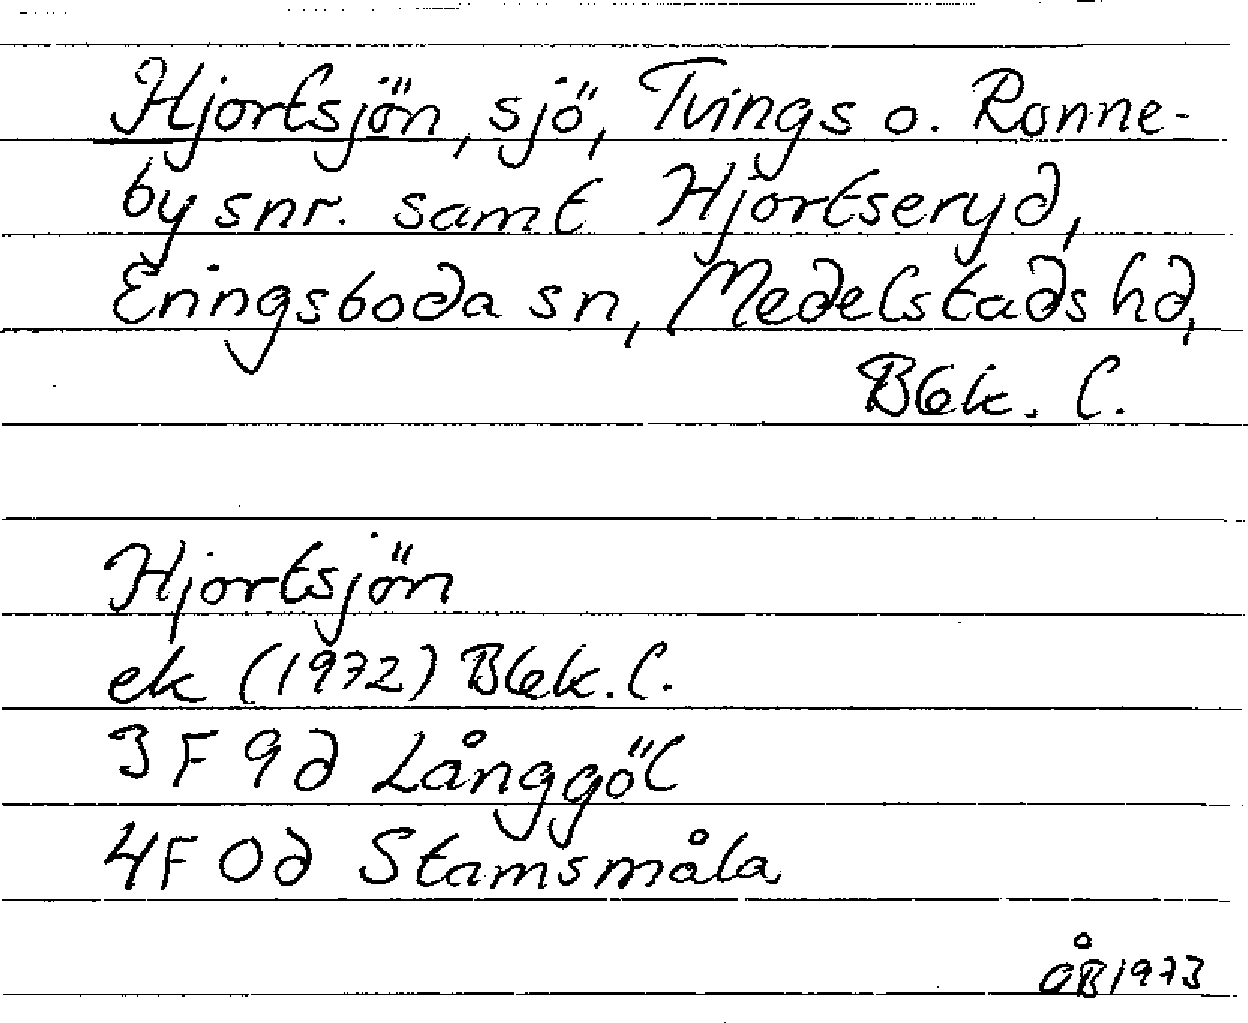 Hjortsjön, sjö, Tvings o. Ronne-
by snr. samt Hjortseryd,
Eringsboda sn, Medelstads hd,
Blek. l.
Hjortsjön
ek (1972) Blek. l.
3F 9d Långgöl
4F 0d Stamsmåla
ÅB 1973